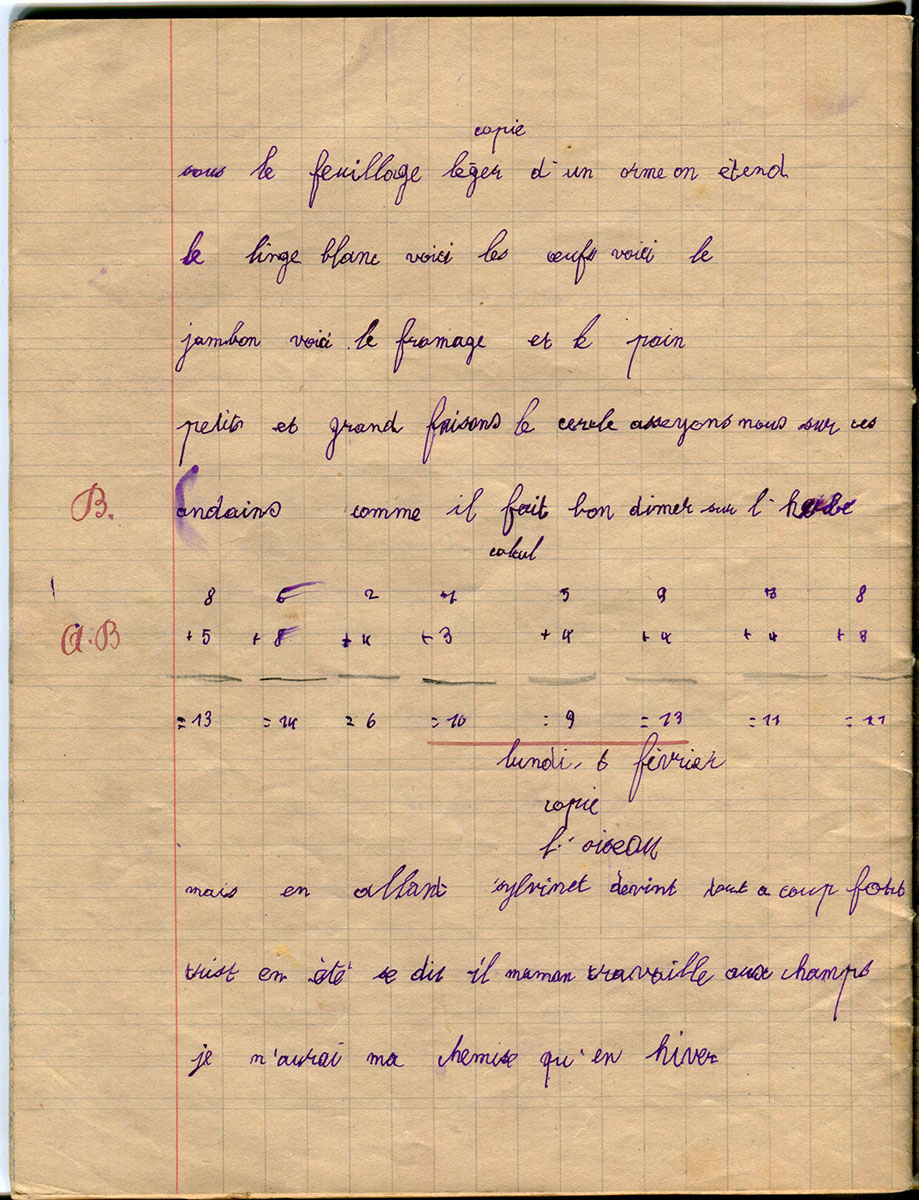 copie
sous le feuillage léger d'un orme on étend
le linge blanc voici les œufs voici le
jambon voici le fromage et le pain
petits et grand faisons le cercle asseyons nous sur ces
B. andains comme il fait bon dimer sur l'herbe
calcul
8 6 2 7 5 9 7 8
A.B +5 +8 +4 +3 +4 +4 +4 +3
=13 =14 =6 =10 =9 =13 =11 =11
lundi, 6 février
copie
l'oiseau
mais en allant sylvinet devint tout a coup fort
trist en été se dit il maman travaille aux champs
je n'aurai ma chemise qu'en hiver